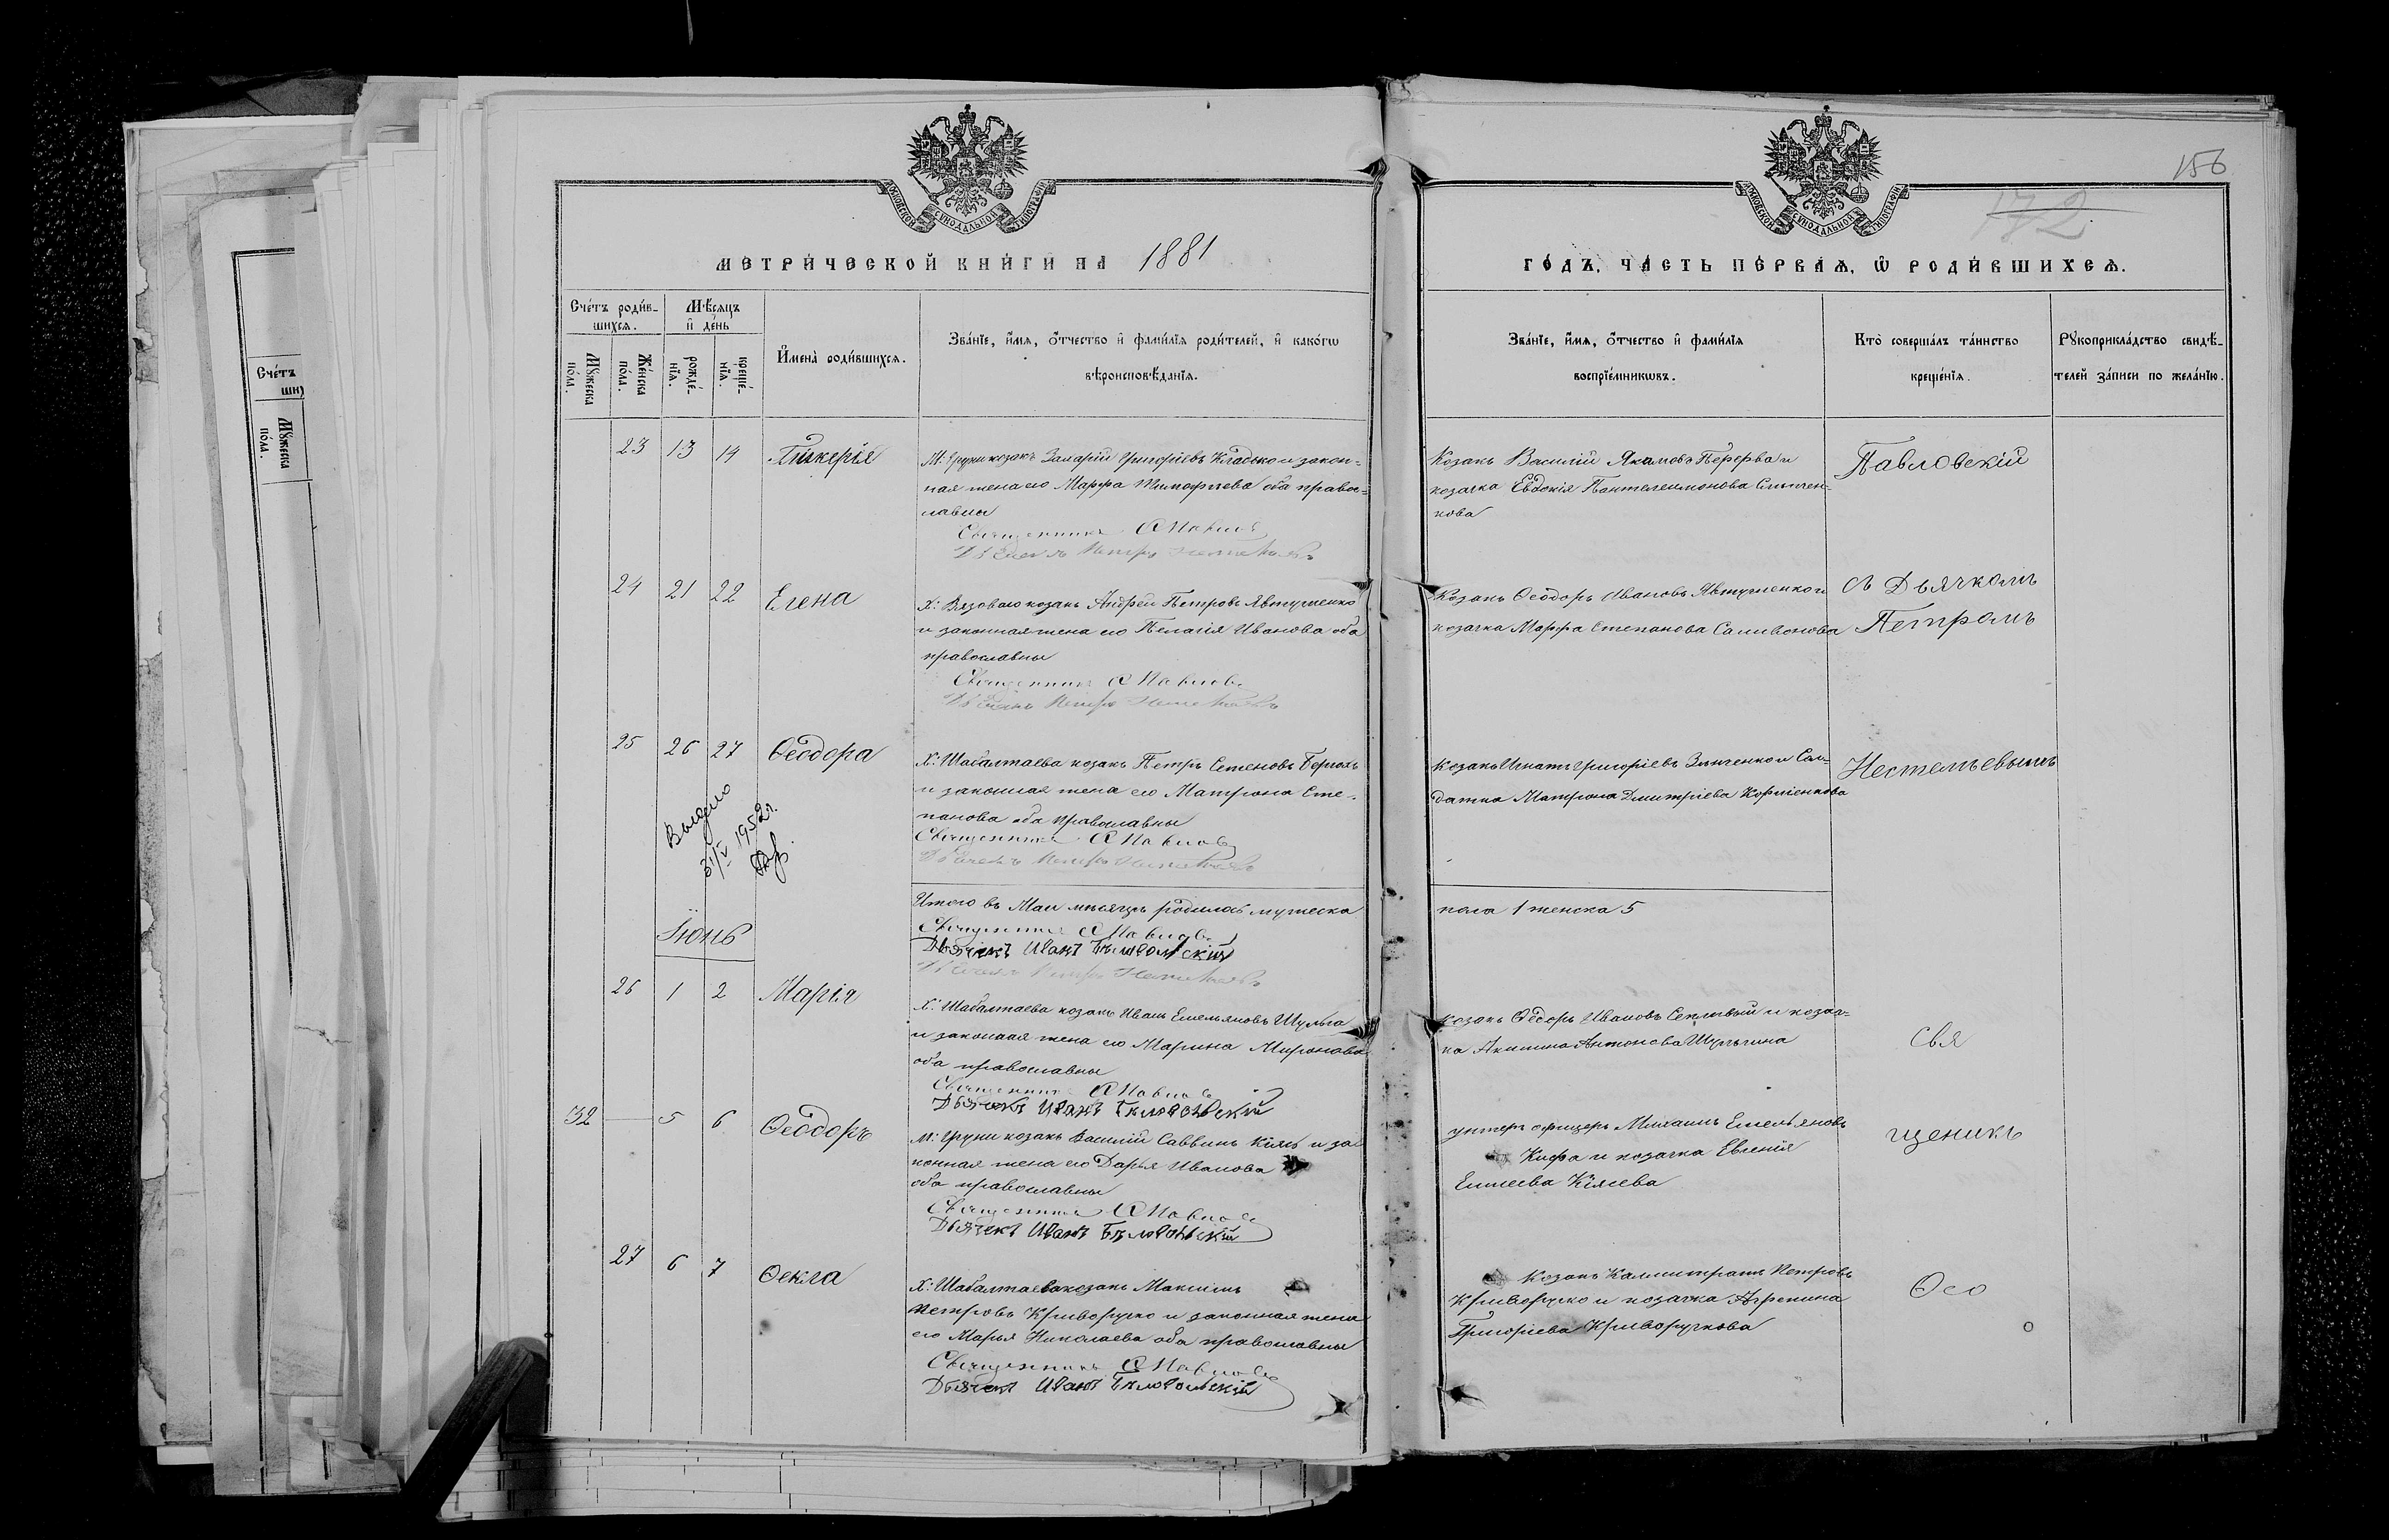 156
172
МОСКОВСКОЙ СѴНОДАЛЬНОЙ ТИПОГРАФІИ
МОСКОВСКОЙ СѴНОДАЛЬНОЙ ТИПОГРАФІИ
МЕТРИ́ЧЕСКОЙ КНИ́ГИ НА 1881
ГО́ДЪ, ЧА́СТЬ ПЕ́РВАЯ, Ѿ РОДИ́ВШИХСЯ.
Сче́тъ роди́в-
шихся.
Мѣ́сяцъ
и҆ де́нь
Мꙋ́жеска по́ла.
Же́нска по́ла.
рожде́-нїя.
креще́-нїя.
И҆мена̀ роди́вшихся.
Зва́нїе, и҆́мя, ѻ҆́тчество и҆ фами́лїя роди́телей, и҆ како́гѡ
вѣроисповѣ́данїя.
Зва́нїе, и҆́мя, ѻ҆́тчество и҆ фами́лїя
воспрїе́мникѡвъ.
Кто̀ соверша́лъ та́инство
креще́нїя.
Рꙋкоприкла́дство свидѣ́-
телей за́писи по жела́нїю.
Сче́тъ
ши
Мꙋ́жеска по́ла.
23 13 14 Гликерія
М: Груни козакъ Захарій Григоріевъ Кладько и закон-
ная жена его Марфа Тимофіева оба право-
славны
Священникъ А Павлов
Дьячекъ Петръ
Козакъ Василій Якимовъ Перерва и
козачка Евдокія Пантелеимонова
кова
Павловскій
24 21 22 Елена
Х: Вязоваго козакъ Андрей Петровъ Явтушенко
и законная жена его Пелагія Иванова оба
православны
Священникъ А Павлов
Дьячекъ Петръ
Козакъ Ѳеодоръ Ивановъ Явтушенко и
козачка Марфа Степанова Саливонова
съ Дьячкомъ
Петромъ
25 26 27 Ѳеодора
Х: Шабалтаева козакъ Петръ Семеновъ
и законная жена его Матрона Сте-
панова оба православны
Священникъ А Павлов
Дьячекъ Петръ
Козакъ Игнатъ Григоріевъ Зинченко и Сол-
датка Матрона Дмитріева Корніенкова
Нестельевымъ
Выдано
31/V 1952 г.
Итого въ Маи мѣсяцѣ родилось мужеска
пола 1 женска 5
Священникъ А Павлов
Дьячекъ Иванъ Бѣловольскій
Дьячекъ Петръ
Іюнь
26 1 2 Марія
Х: Шабалтаева козакъ Иванъ Емельяновъ Шульга
и законная жена его Марина Миронова
оба православны
Священникъ А Павлов
Дьячекъ Иванъ Бѣловольскій
козакъ Ѳедоръ Ивановъ и козач-
ка Акилина Антонова Шульгина
Свя
32 5 6 Ѳеодоръ
М: Груни козакъ Василій Саввинъ Кіяшь и за-
конная жена его Дарья Иванова
оба православны
Священникъ А Павлов
Дьячекъ Иванъ Бѣловольскій
унтеръ офицеръ Михаилъ Емельяновъ
Кифа и козачка Евгенія
Елисеева Кіяшева
щеникъ
27 6 7 Ѳекла
Х: Шабалтаева козакъ Максимъ
Петровъ Криворучко и законная жена
его Марья Николаева оба православны
Священникъ А Павлов
Дьячекъ Иванъ Бѣловольскій
Козакъ Каллистратъ Петровъ
Криворучко и козачка Агрепина
Григоріева Криворучкова
Ѳео